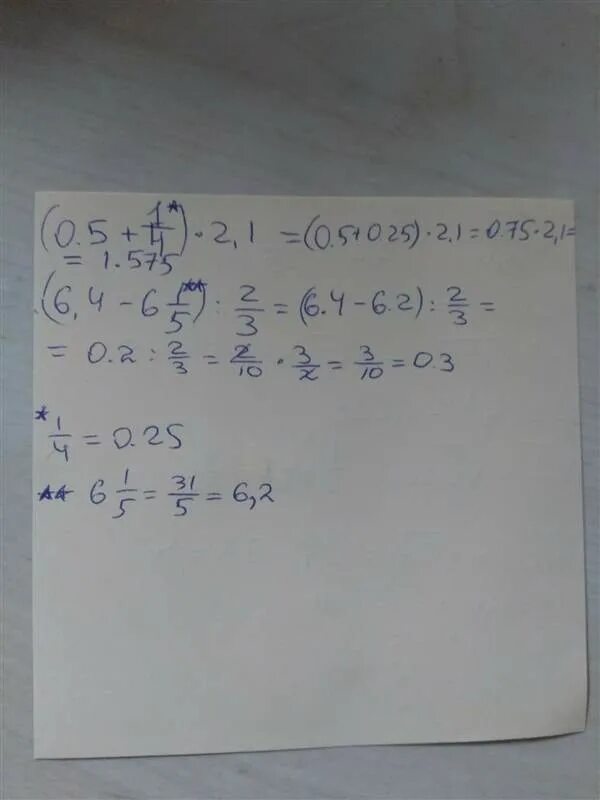 (0.5 + 1/4*) · 2,1 = (0.5+0.25) · 2,1 = 0.75 · 2,1 =
= 1.575
(6,4 - 6 1/5**) : 2/3 = (6.4 - 6.2) : 2/3 =
= 0.2 : 2/3 = 2/10 · 3/2 = 3/10 = 0.3
* 1/4 = 0.25
** 6 1/5 = 31/5 = 6,2